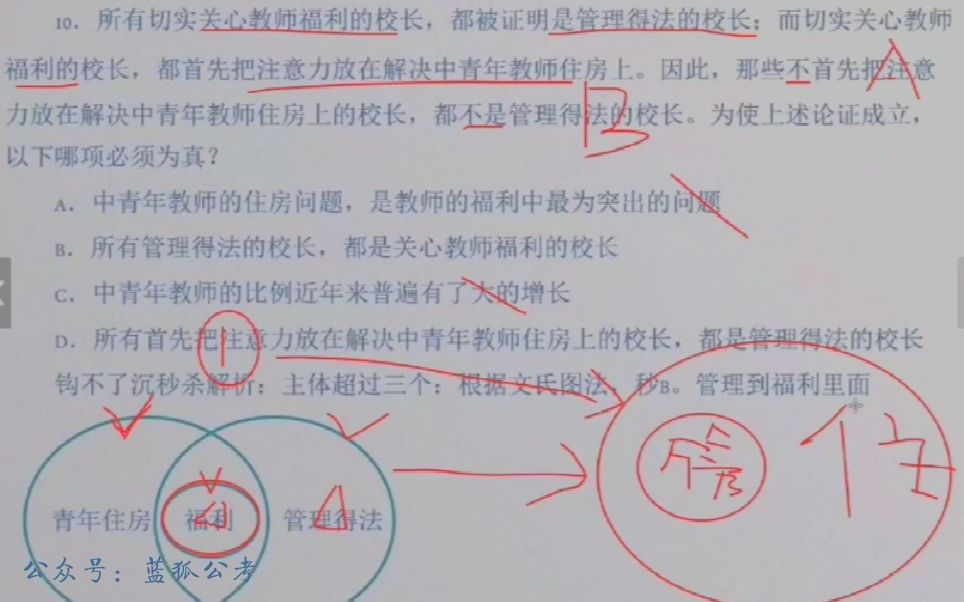 10．所有切实关心教师福利的校长，都被证明是管理得法的校长；而切实关心教师
福利的校长，都首先把注意力放在解决中青年教师住房上。因此，那些不首先把注意
力放在解决中青年教师住房上的校长，都不是管理得法的校长。为使上述论证成立，
以下哪项必须为真？
A．中青年教师的住房问题，是教师的福利中最为突出的问题
B．所有管理得法的校长，都是关心教师福利的校长
C．中青年教师的比例近年来普遍有了大的增长
D．所有首先把注意力放在解决中青年教师住房上的校长，都是管理得法的校长
钩不了沉秒杀解析：主体超过三个：根据文氏图法，秒B。管理到福利里面
A
B
1
青年住房 福利 管理得法
住
公众号：蓝狐公考